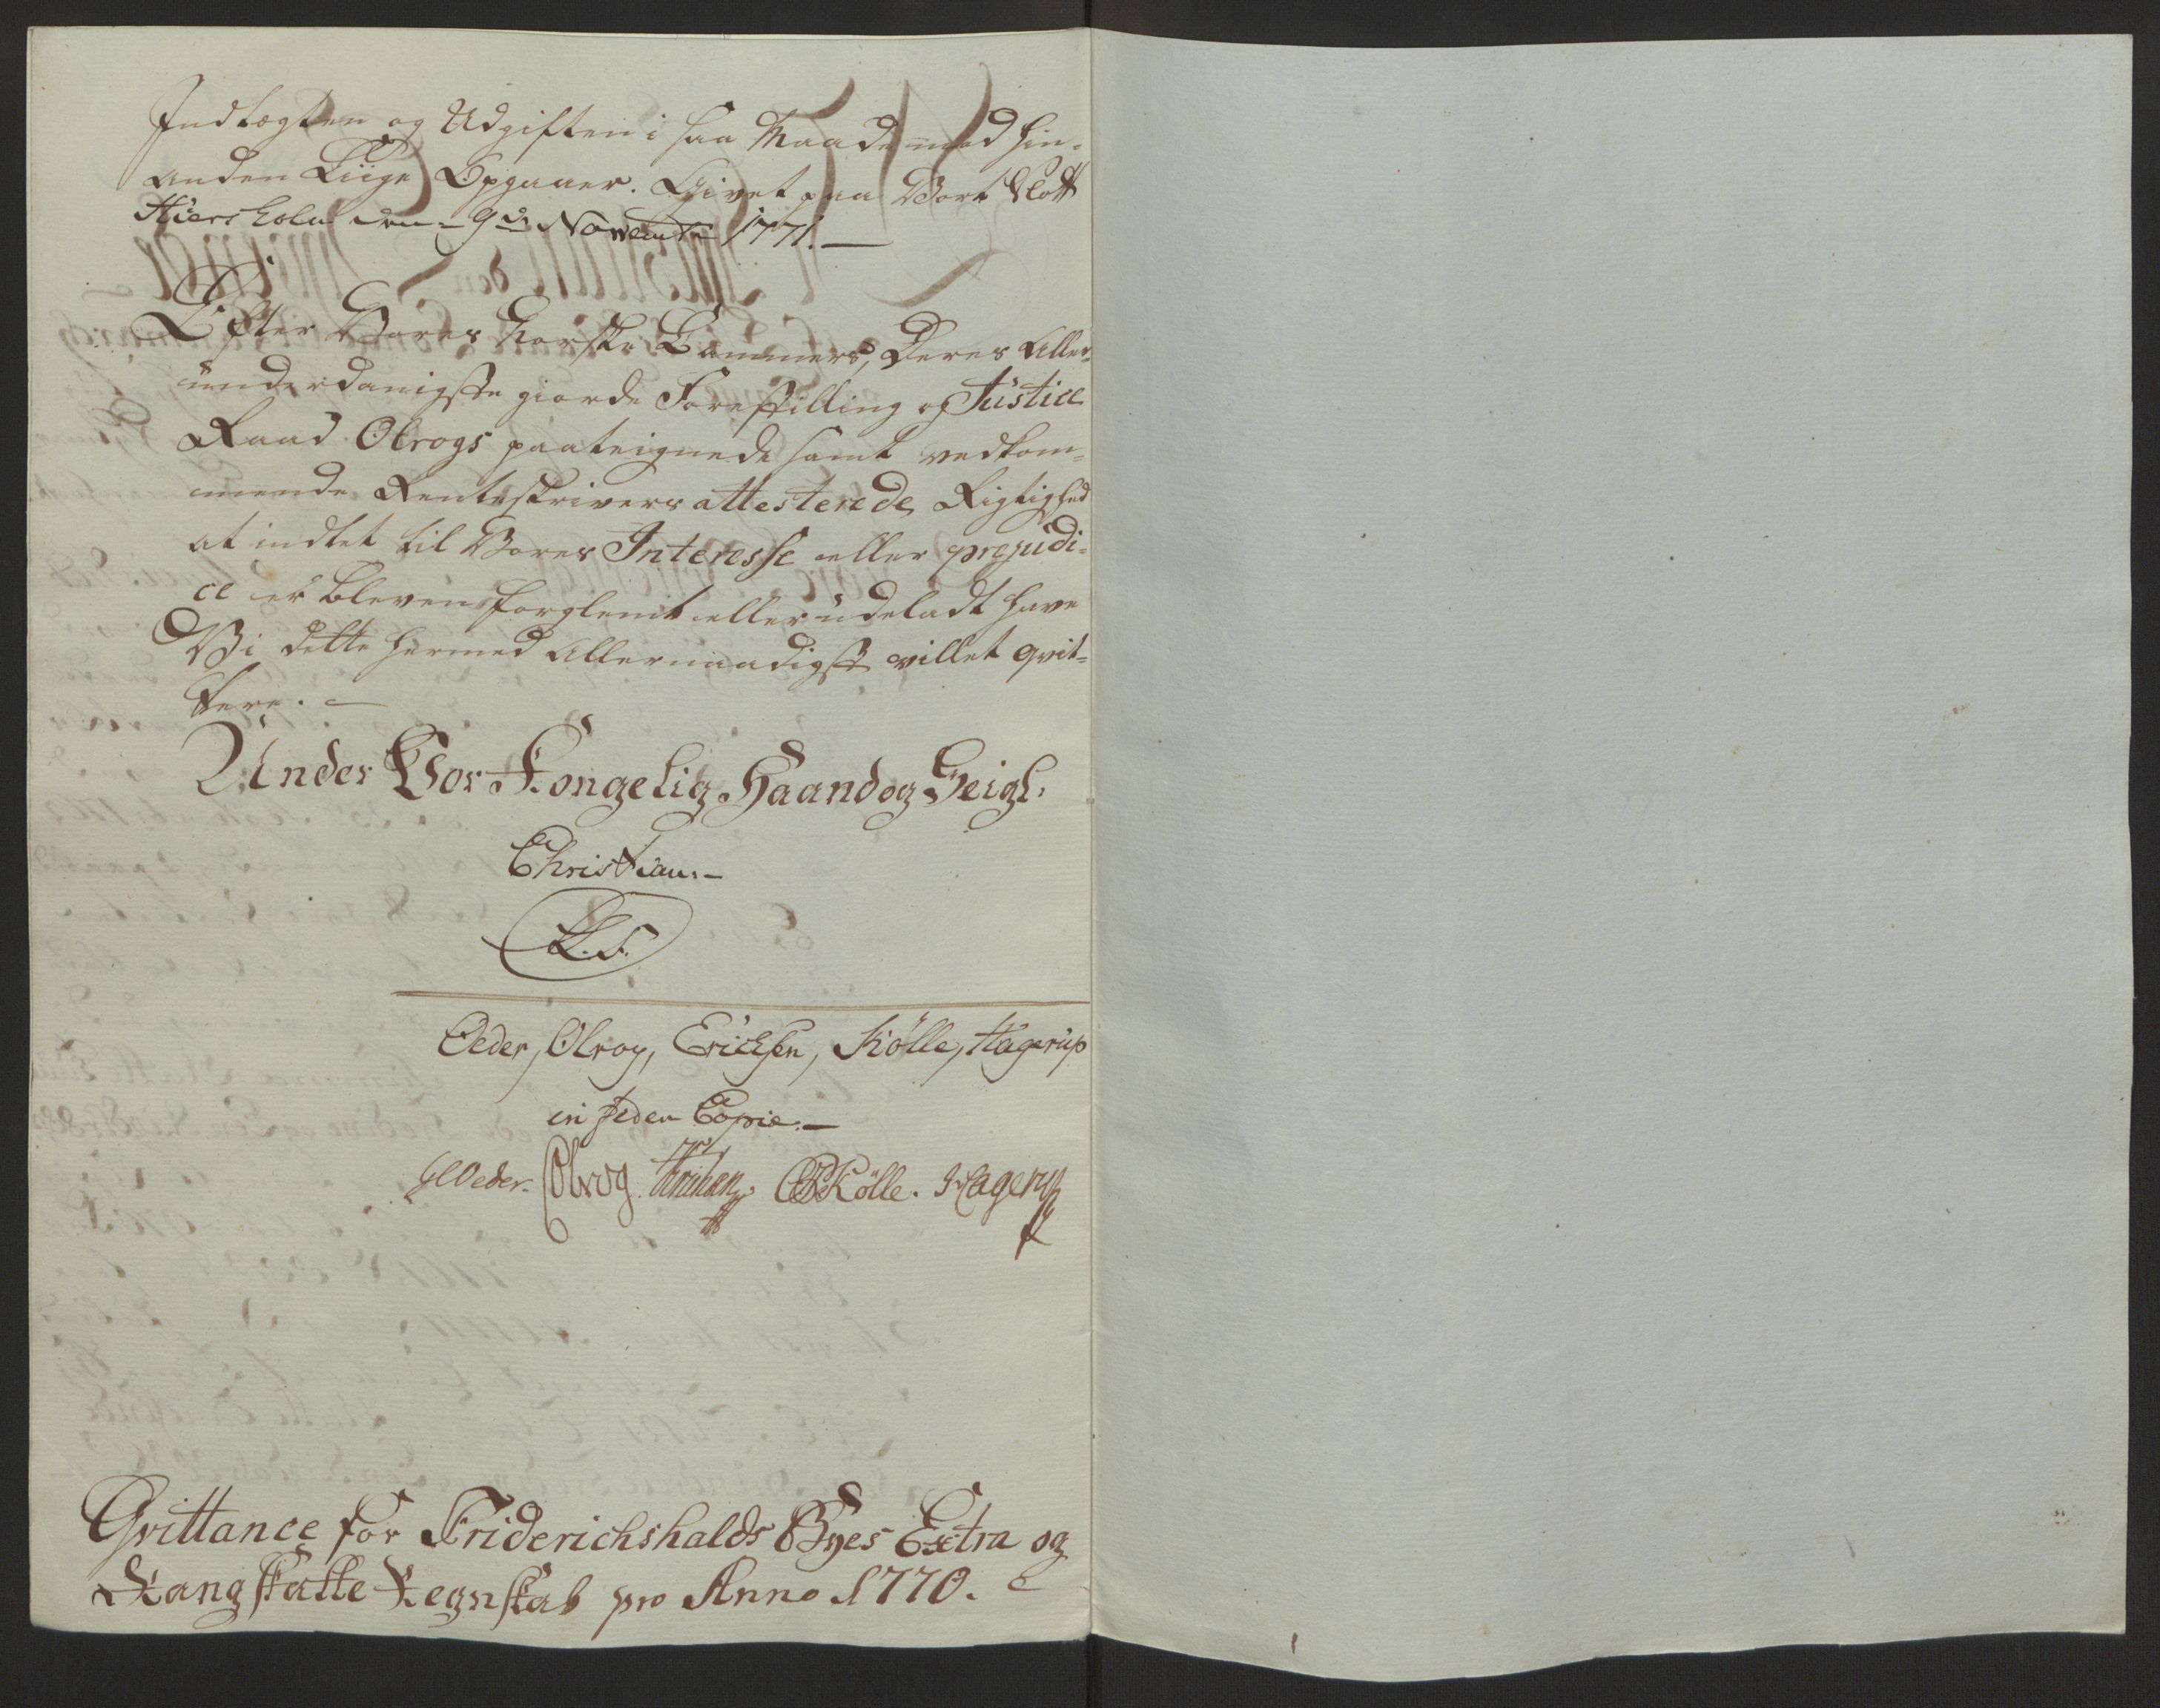 Indtægten og Udgiften i saa Maade med hin-
anden Liige Opgaaer. Givet paa Vort Slott
Hiersholm den 9de Novembr 1771.
Efter Vores Norske Cammers, Deres Aller-
underdanigste giorde Forestilling og Justice
Raad Olrogs paateignede samt vedkom-
mende Renteskrivers attesterede Rigtighed
at indtet til Vores Interesse eller prejudi-
ce er bleven forglemt eller udeladt have
Vi dette hermed Allernaadigst villet qvit-
tere.
Under Vor Kongelig Haand og Seigl.
Christian.
L.S.
Oeder, Olrog, Erichsen, Kölle, Hagerup
in fidem Copiæ.
GOeder. COlrog. Erichsen. CKölle. Hagerup
Qvittance for Friderichshalds Byes Extra og
Rang Skatte Regnskab pro Anno 1770.